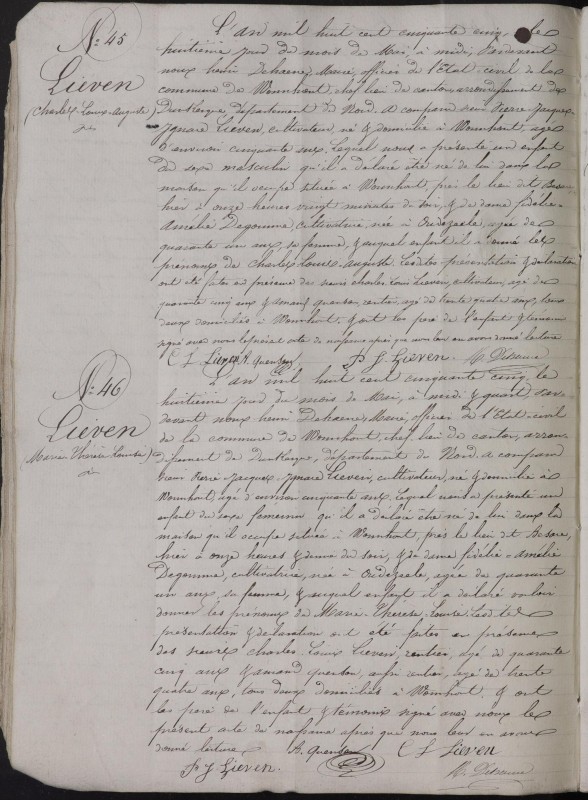 N.° 45
Lieven
(Charles Louis Auguste)
L'an mil huit cent cinquante cinq, le
huitième jour du mois de Mai, à midi, Pardevant
nous henri Dehaene, Maire, officier de l'Etat-civil de la
commune de Wormhout, chef lieu de canton, arrondissement de
Dunkerque, département du Nord. A comparu sieur Pierre Jacques
Ignace Lieven, cultivateur, né & domicilié à Wormhout, agé
d'environ cinquante aux, Lequel nous a présenté un enfant
du sexe masculin qu'il a déclaré être né de lui dans la
maison qu'il occupe située à Wormhout, près le lieu dit
hier à onze heures vingt minutes du soir, & de dame fidélie-
Amélie Degomme, cultivatrice, née à Oudezeele, agée de
quarante un aux, sa femme, & auquel enfant il a donné les
prénoms de Charles-Louis-Auguste. Lesdites présentation & déclaration
ont été faites en présence des sieurs charles Louis Lieven, cultivateur, agé de
quarante cinq aux & amand Quenson, rentier, agé de trente quatre aux, tous
deux domiciliés à Wormhout, & ont les père de l'enfant & témoins
signé avec nous le présent acte de naissance après que nous leur en avons donné lecture
C L Lieven A. Quenson P J Lieven. H. Dehaene
N.° 46
Lieven
(Marie Thérèse Louise)
L'an mil huit cent cinquante cinq, le
huitième jour du mois de Mai, à midi & quart, Par-
devant nous henri Dehaene, Maire, officier de l'Etat-civil
de la commune de Wormhout, chef lieu de canton, arron-
dissement de Dunkerque, département du Nord. A comparu
sieur Pierre Jacques Ignace Lieven, cultivateur, né & domicilié à
Wormhout, agé d'environ cinquante aux. Lequel nous a présenté un
enfant du sexe feminin qu'il a déclaré être né de lui dans la
maison qu'il occupe située à Wormhout, près le lieu dit
hier à onze heures & demie du soir, & de dame fidélie-Amélie
Degomme, cultivatrice, née à Oudezeele, agée de quarante
un aux, sa femme, & auquel enfant il a déclaré vouloir
donner les prénoms de Marie-Thérèse-Louise. Lesdites
présentation & déclaration ont été faites en présence
des sieurs charles-Louis Lieven, rentier, agé de quarante
cinq aux & amand Quenson, rentier, agé de trente
quatre aux, tous deux domiciliés à Wormhout, & ont
les père de l'enfant & témoins signé avec nous le
présent acte de naissance après que nous leur en avons
donné lecture A. Quenson C L Lieven
P J Lieven. H. Dehaene